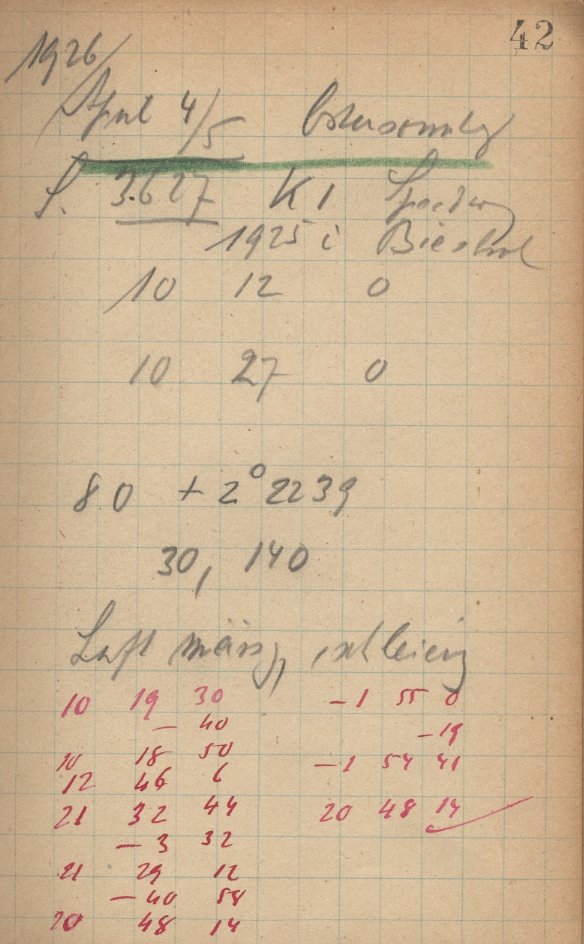 42
1926/
April 4/5 Ostersonntag
3.627 K1
1925 i
10 12 0
10 27 0
80 + 2° 2239
30, 140
Luft mässig, schleierig
10 19 30 -1 55 0
- 40 -19
10 18 50 -1 54 41
12 46 6
21 32 44 20 48 14
- 3 32
21 29 12
- 40 58
20 48 14